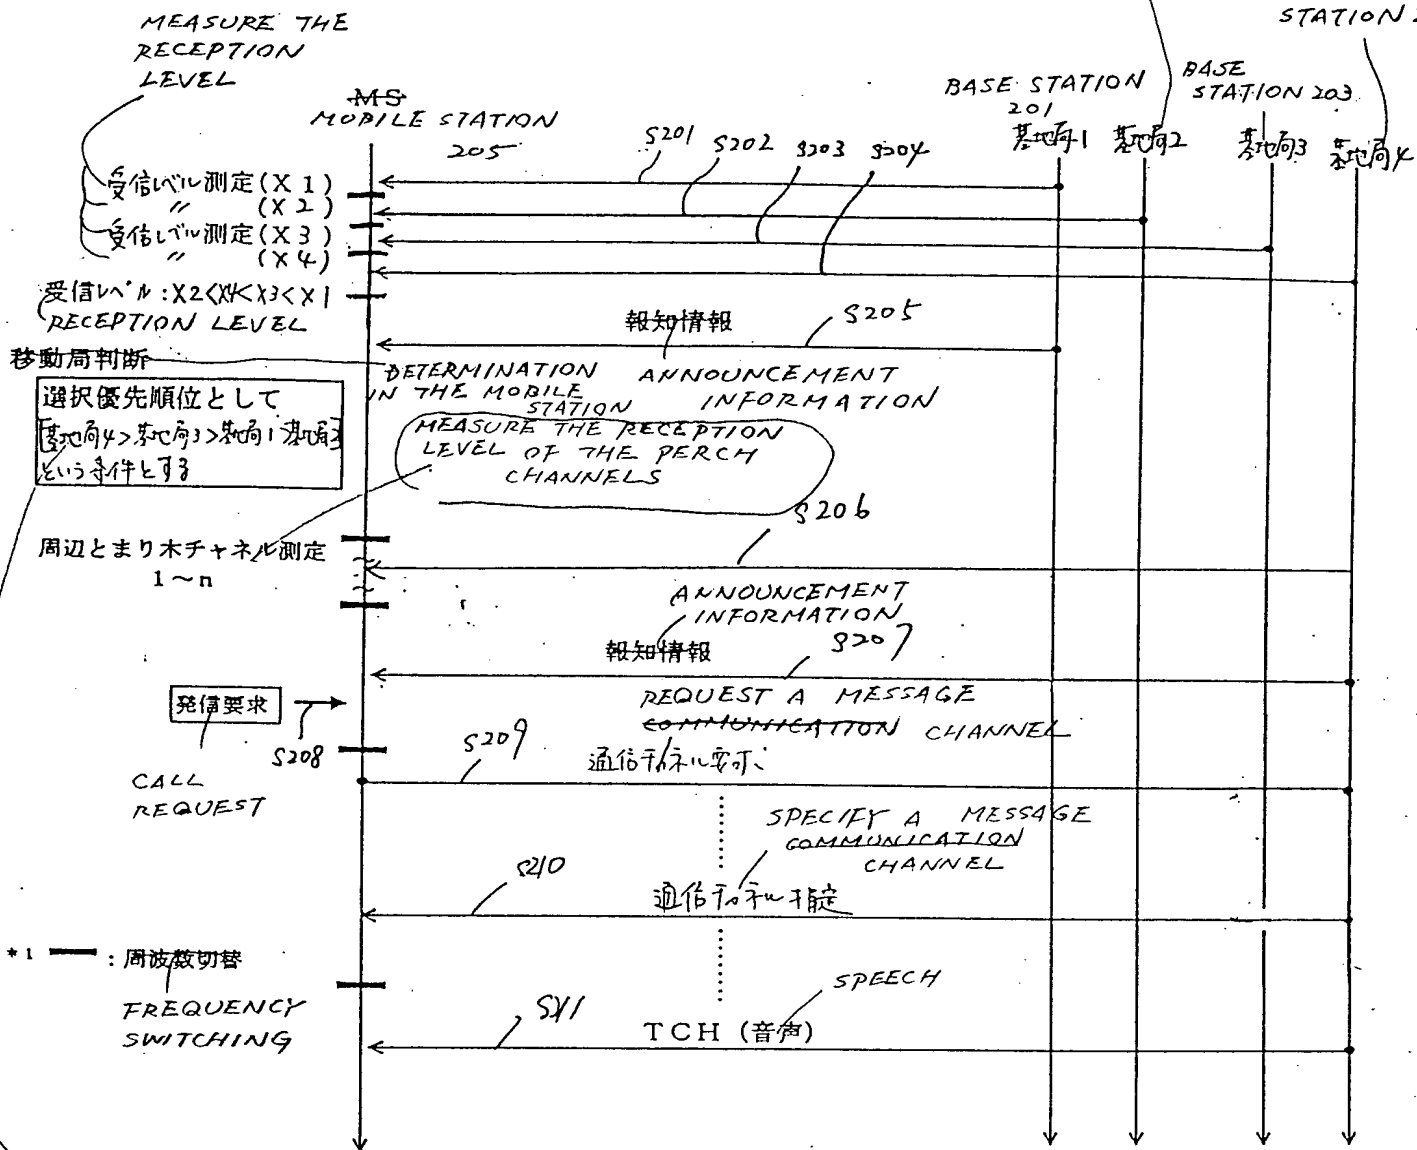 MEASURE THE
RECEPTION
LEVEL
STATION
MS
MOBILE STATION
205
BASE STATION
201
BASE
STATION 203
基地局1
基地局2
基地局3
基地局4
S201
S202
S203
S204
受信レベル測定(X1)
〃 (X2)
受信レベル測定(X3)
〃 (X4)
受信レベル:X2<X4<X3<X1
RECEPTION LEVEL
報知情報
S205
移動局判断
DETERMINATION
IN THE MOBILE
STATION
ANNOUNCEMENT
INFORMATION
選択優先順位として
基地局4>基地局3>基地局1>基地局2
という条件とする
MEASURE THE RECEPTION
LEVEL OF THE PERCH
CHANNELS
S206
周辺とまり木チャネル測定
1~n
ANNOUNCEMENT
INFORMATION
報知情報
S207
発信要求
S208
CALL
REQUEST
REQUEST A MESSAGE
COMMUNICATION CHANNEL
S209
通信チャネル要求
SPECIFY A MESSAGE
COMMUNICATION
CHANNEL
S210
通信チャネル指定
*1 : 周波数切替
FREQUENCY
SWITCHING
SPEECH
S211
TCH (音声)